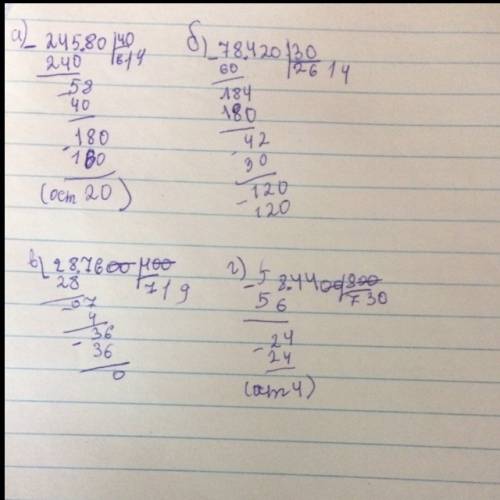 а) 24580 |40
240 614
58
40
180
160
(ост 20)
б) 78.420 |30
60 2614
184
180
42
30
120
120
в) 287600 |400
28 719
07
4
36
36
0
г) 58.4400 |800
56 730
24
24
(ост 4)